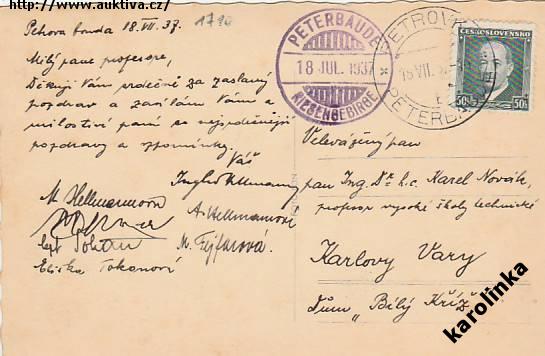 http://www.auktiva.cz/
Petrova bouda 18.VII.37.
1790
Milý pane profesore,
Děkuji Vám srdečně za zaslaný
pozdrav a zasílám Vám a
milostivé paní co nejsrdečnější
pozdravy a vzpomínky.
Váš
M. Hellmannová
A. Hellmannová
M. Fejfarová
PETERBAUDE
18 JUL. 1937
RIESENGEBIRGE
PETROV
PETERB
ČESKOSLOVENSKO
50h
50h
Velevážený pan
pan Ing. Dr. h.c. Karel Novák,
profesor vysoké školy technické
Karlovy Vary
Dům "Bílý Kříž"
karolinka